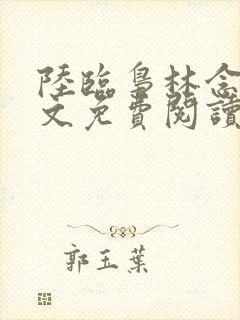 陸臨梟林念
文免費閱讀
郭玉葉